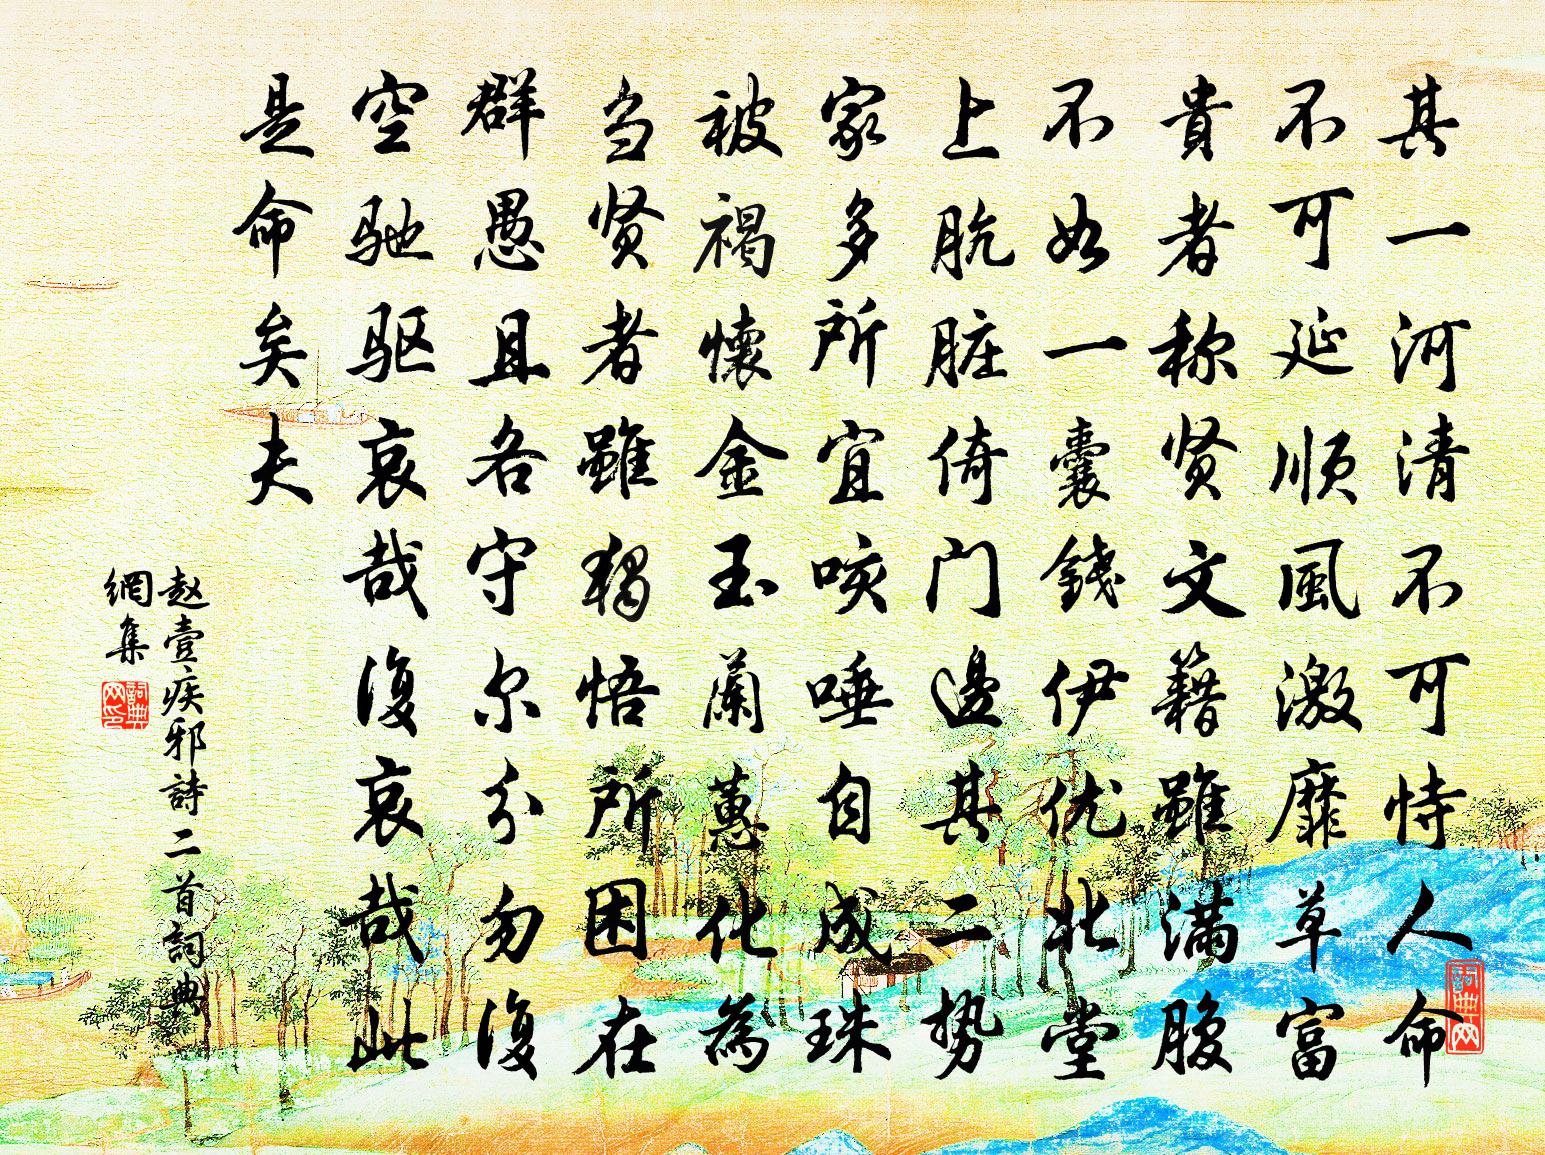 其一河清不可恃人命
不可延顺風激靡草富
貴者称贤文籍雖满腹
不如一囊錢伊优北堂
上肮脏倚门邊其二势
家多所宜咳唾自成珠
被褐懷金玉蘭蕙化為
芻贤者雖独悟所困在
群愚且各守尔分勿復
空驰驱哀哉復哀哉此
是命矣夫
赵壹疾邪詩二首詞典
網集
詞典网
詞典网印